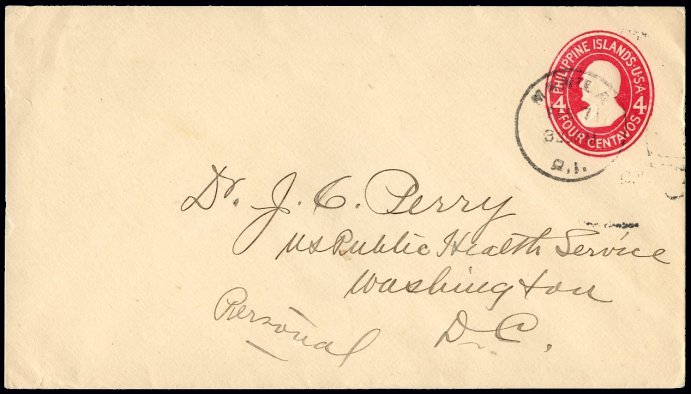 PHILIPPINE ISLANDS·U.S.A.
4 4
FOUR CENTAVOS
MANILA
P.I.
Dr. J. C. Perry
US Public Health Service
Washington
D.C.
Personal